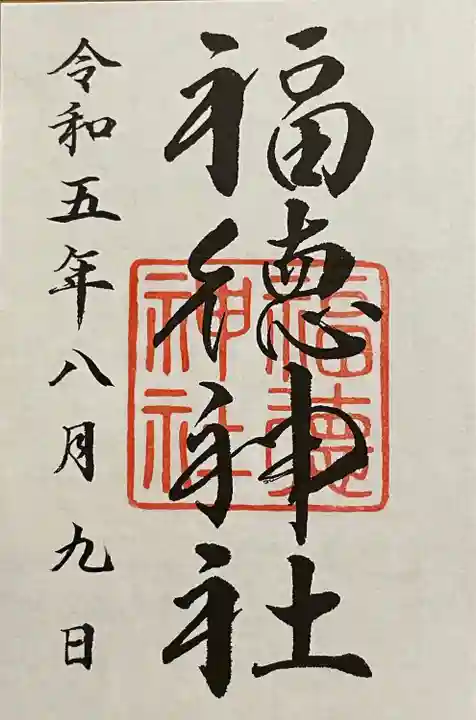 福徳神社
福徳神社
令和五年八月九日